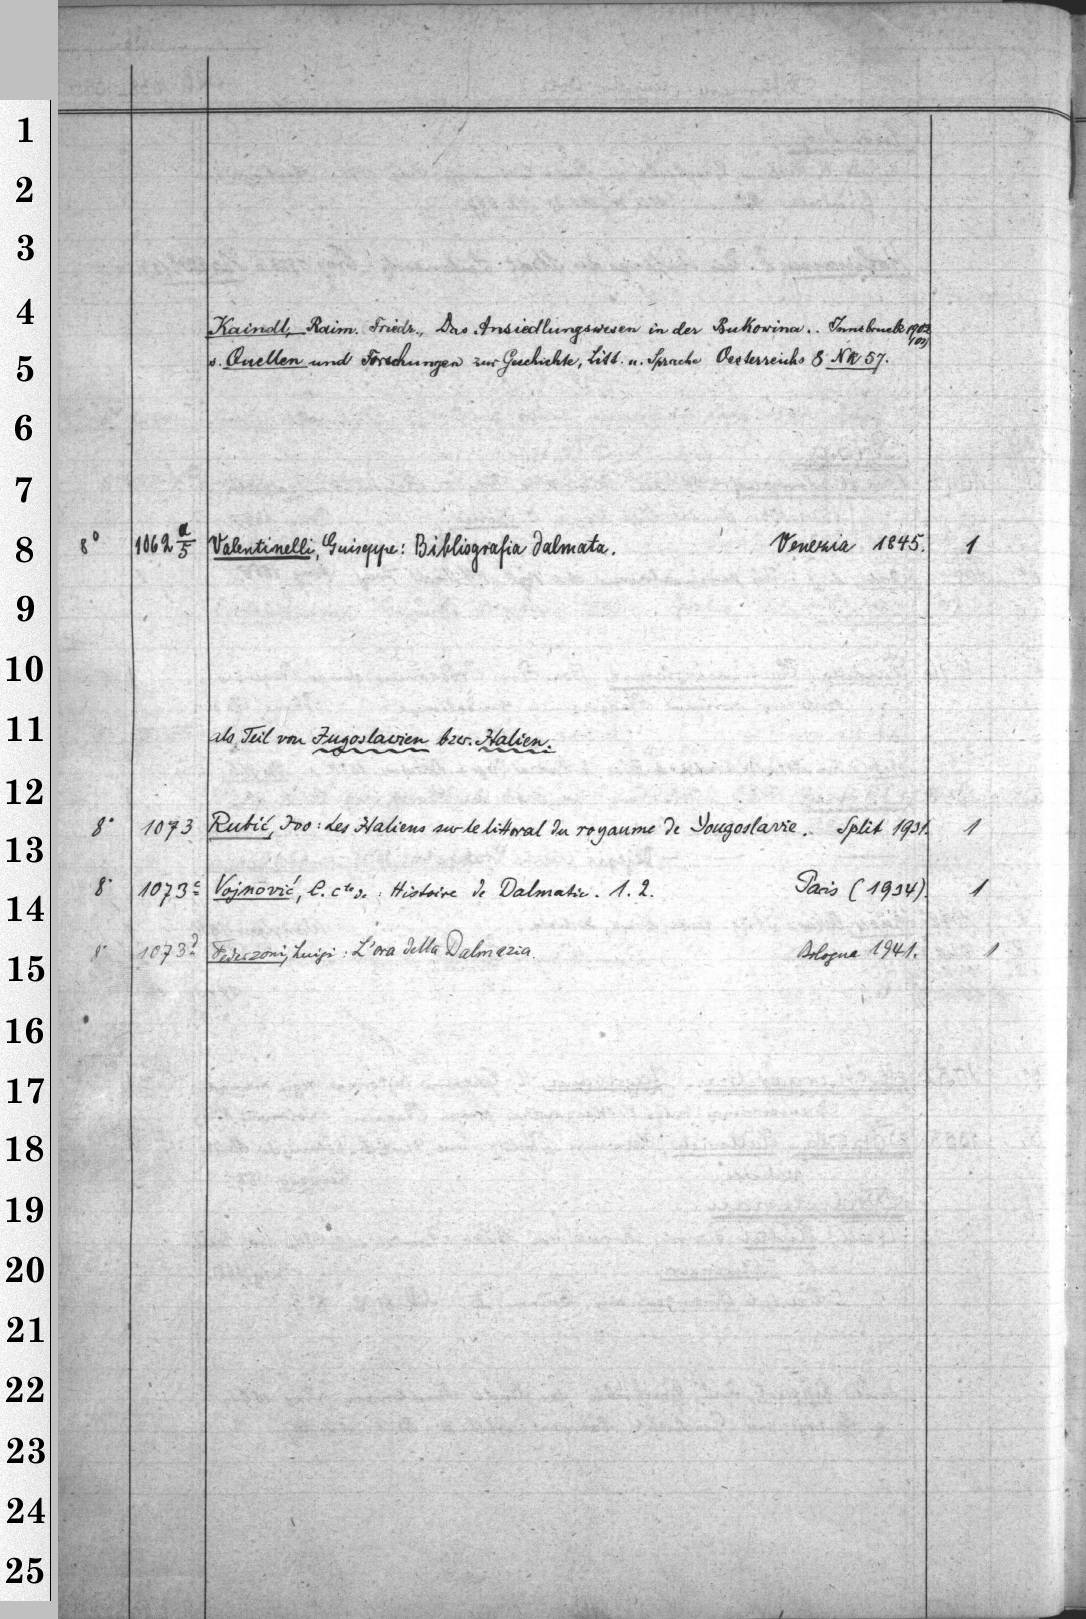 1
2
3
4
Kaindl, Raim. Friedr., Das Ansiedlungswesen in der Bukowina.. Innsbruck 1902
5
s. Quellen und Forschungen zur Geschichte, Litt. u. Sprache Oesterreichs 8 NK 57.
6
7
8
8° 1062 a/5 Valentinelli, Guiseppe: Bibliografia dalmata. Venezia 1845. 1
9
10
11
als Teil von Jugoslavien bzw. Italien.
12
8° 1073 Rubić, Ivo: Les Italiens sur le littoral du royaume de Yougoslavie. Split 1931. 1
13
8° 1073c Vojnović, L. Cte de: Histoire de Dalmatie. 1. 2. Paris (1934). 1
14
8° 1073 Federzoni, Luigi: L'ora della Dalmazia. Bologna 1941. 1
15
16
17
18
19
20
21
22
23
24
25